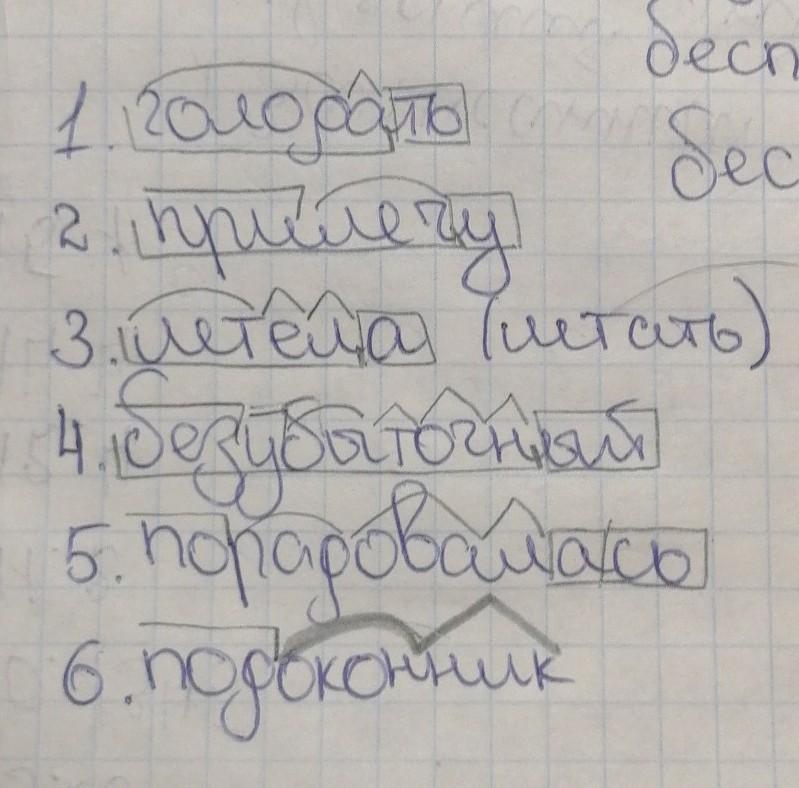 бесп
1. голодать
бес
2. прилечу
3. летела (летать)
4. безубыточный
5. порадовалась
6. подоконник